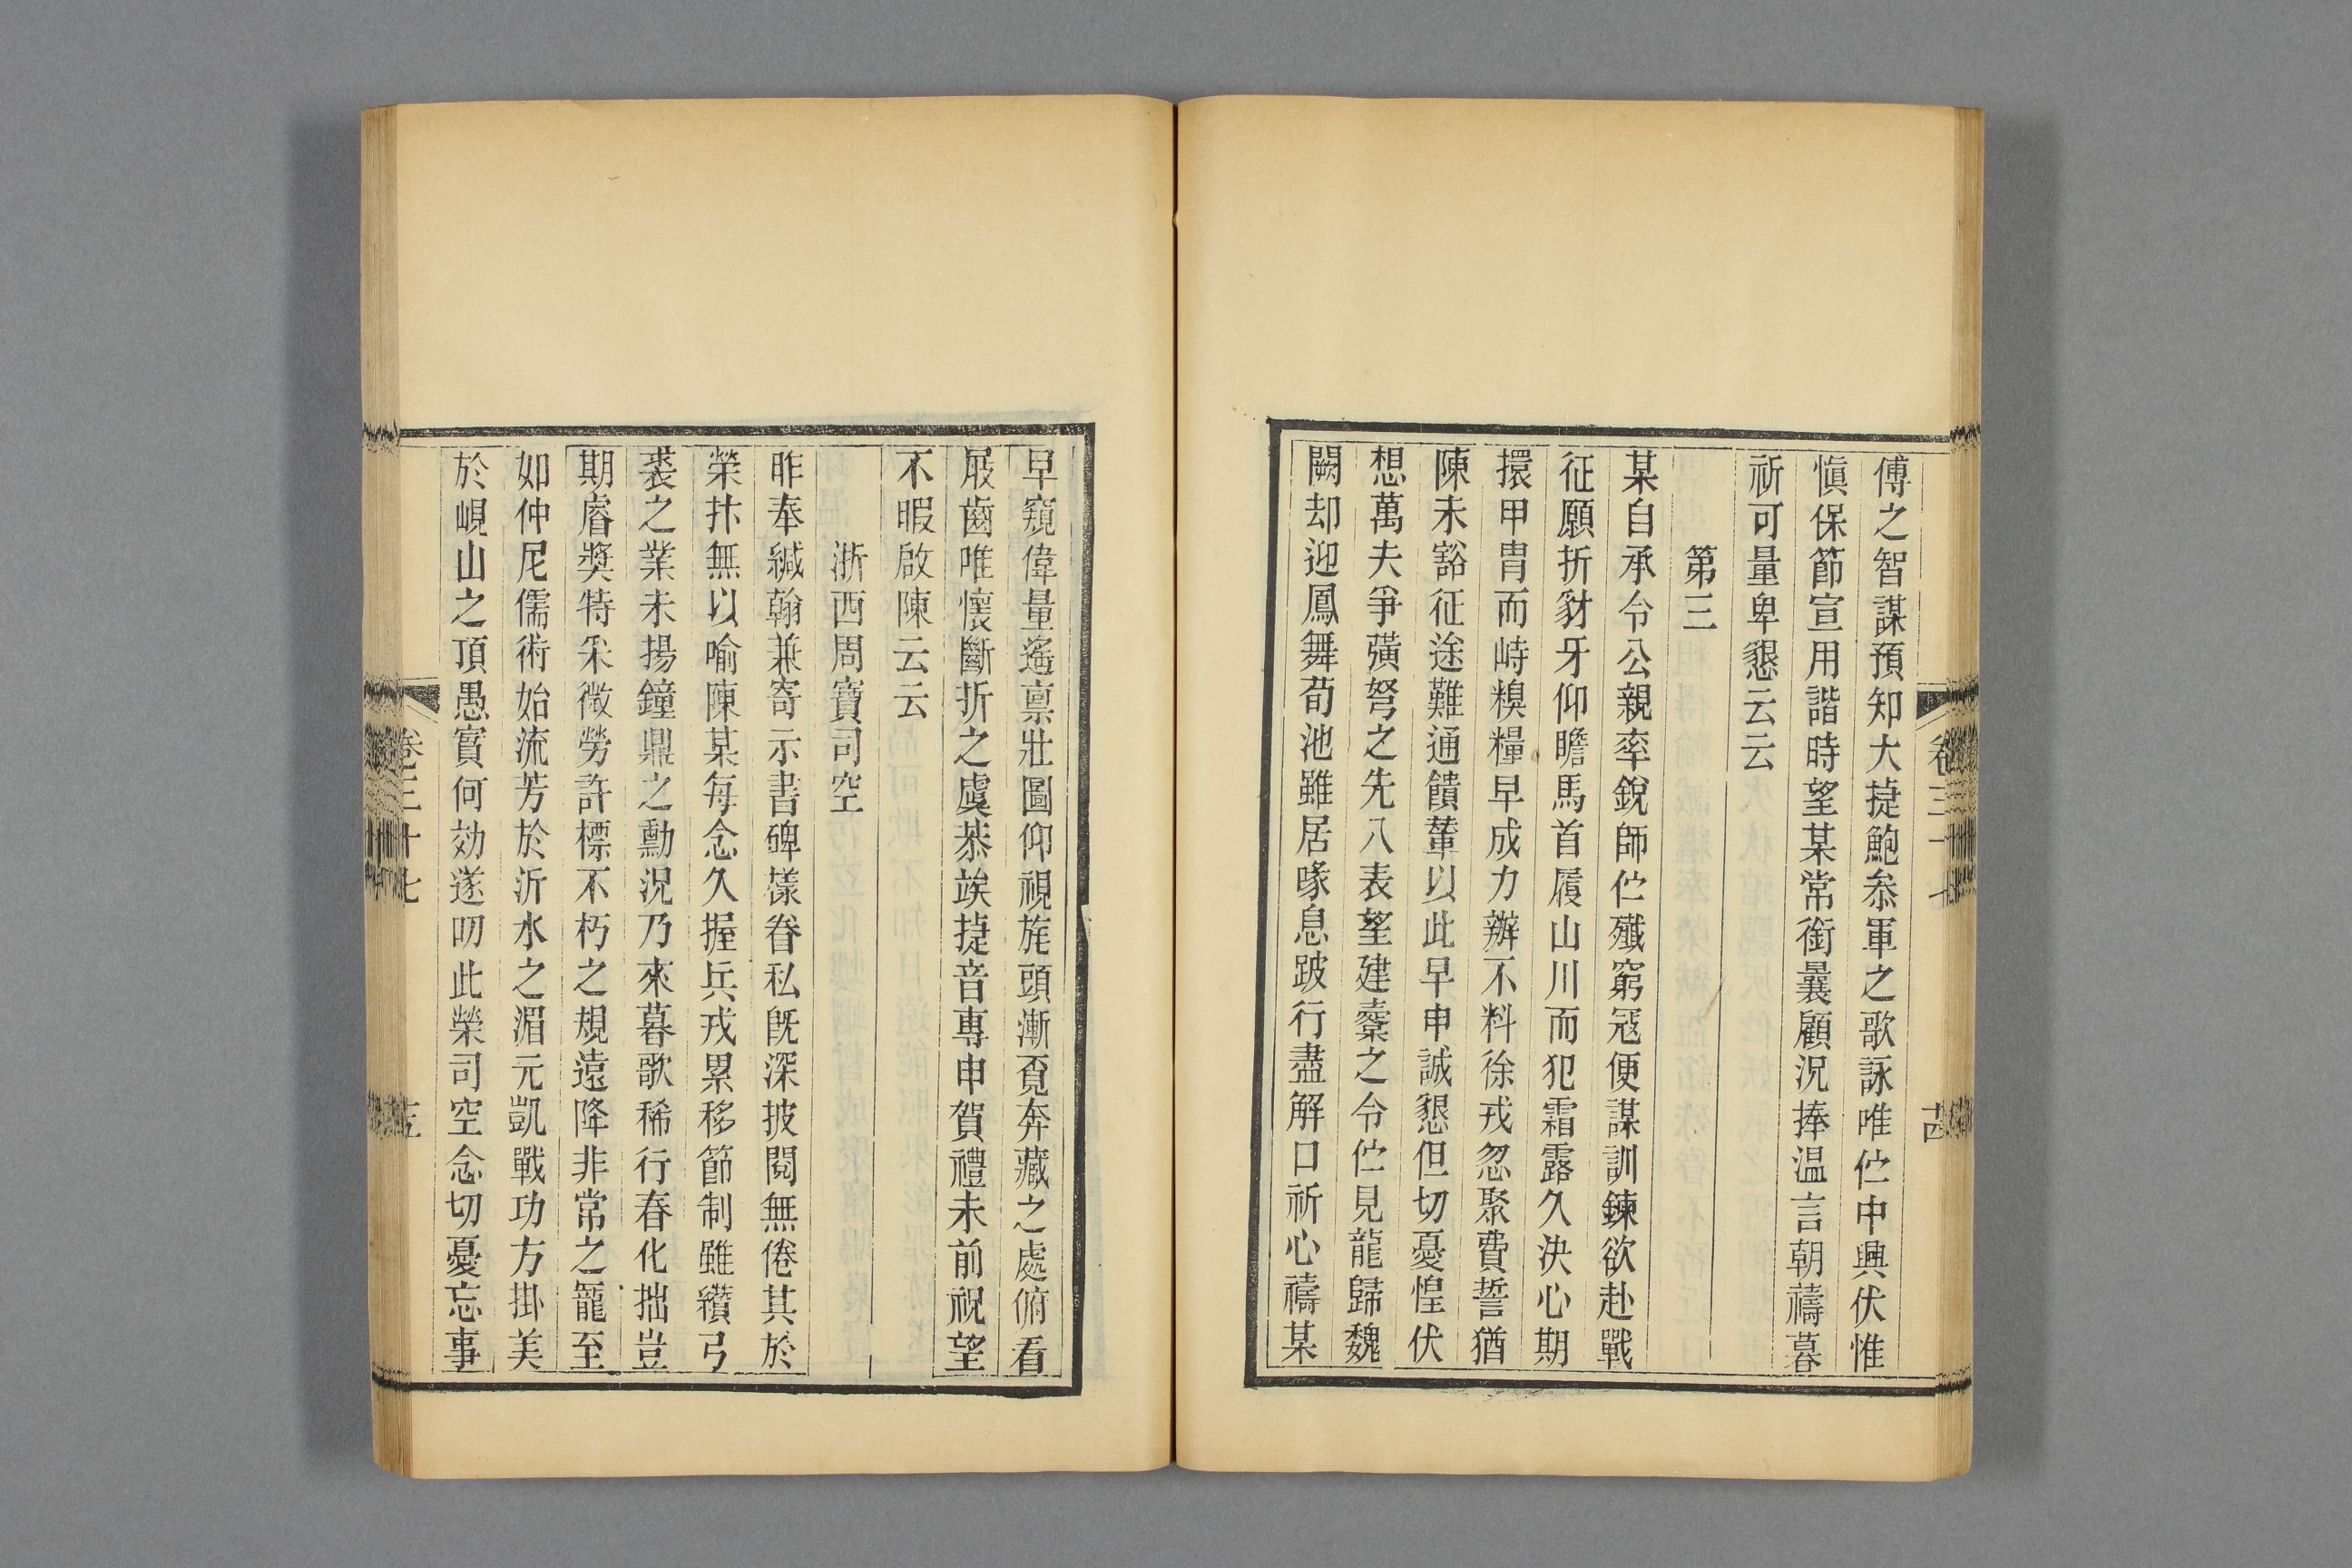 傅之智謀預知大捷鮑叅軍之歌詠唯伫中興伏惟
愼保節宣用諧時望某常銜曩顧況捧温言朝禱暮
祈可量卑懇云云
第三
某自承令公親率銳師伫殲窮寇便謀訓鍊欲赴戰
征願折豺牙仰瞻馬首履山川而犯霜露久決心期
擐甲冑而峙糗糧早成力辦不料徐戎忽聚費誓猶
陳未豁征途難通饋輦以此早申誠懇但切憂惶伏
想萬夫爭彍弩之先八表望建櫜之令伫見龍歸魏
闕却迎鳳舞荀池雖居喙息跛行盡解口祈心禱某
卷三十七
十四
早窺偉量遙禀壯圖仰視旄頭漸覔奔藏之處俯看
屐齒唯懷斷折之虞恭竢捷音專申賀禮未前祝望
不暇啟陳云云
浙西周寶司空
昨奉緘翰兼寄示書碑㨾眷私旣深披閱無倦其於
榮抃無以喻陳某每念久握兵戎累移節制雖纘弓
裘之業未揚鐘鼎之勳況乃來暮歌稀行春化拙豈
期睿獎特采微勞許標不朽之規遠降非常之寵至
如仲尼儒術始流芳於沂水之湄元凱戰功方掛美
於峴山之頂愚實何効遂叨此榮司空念切憂忘事
卷三十七
十五